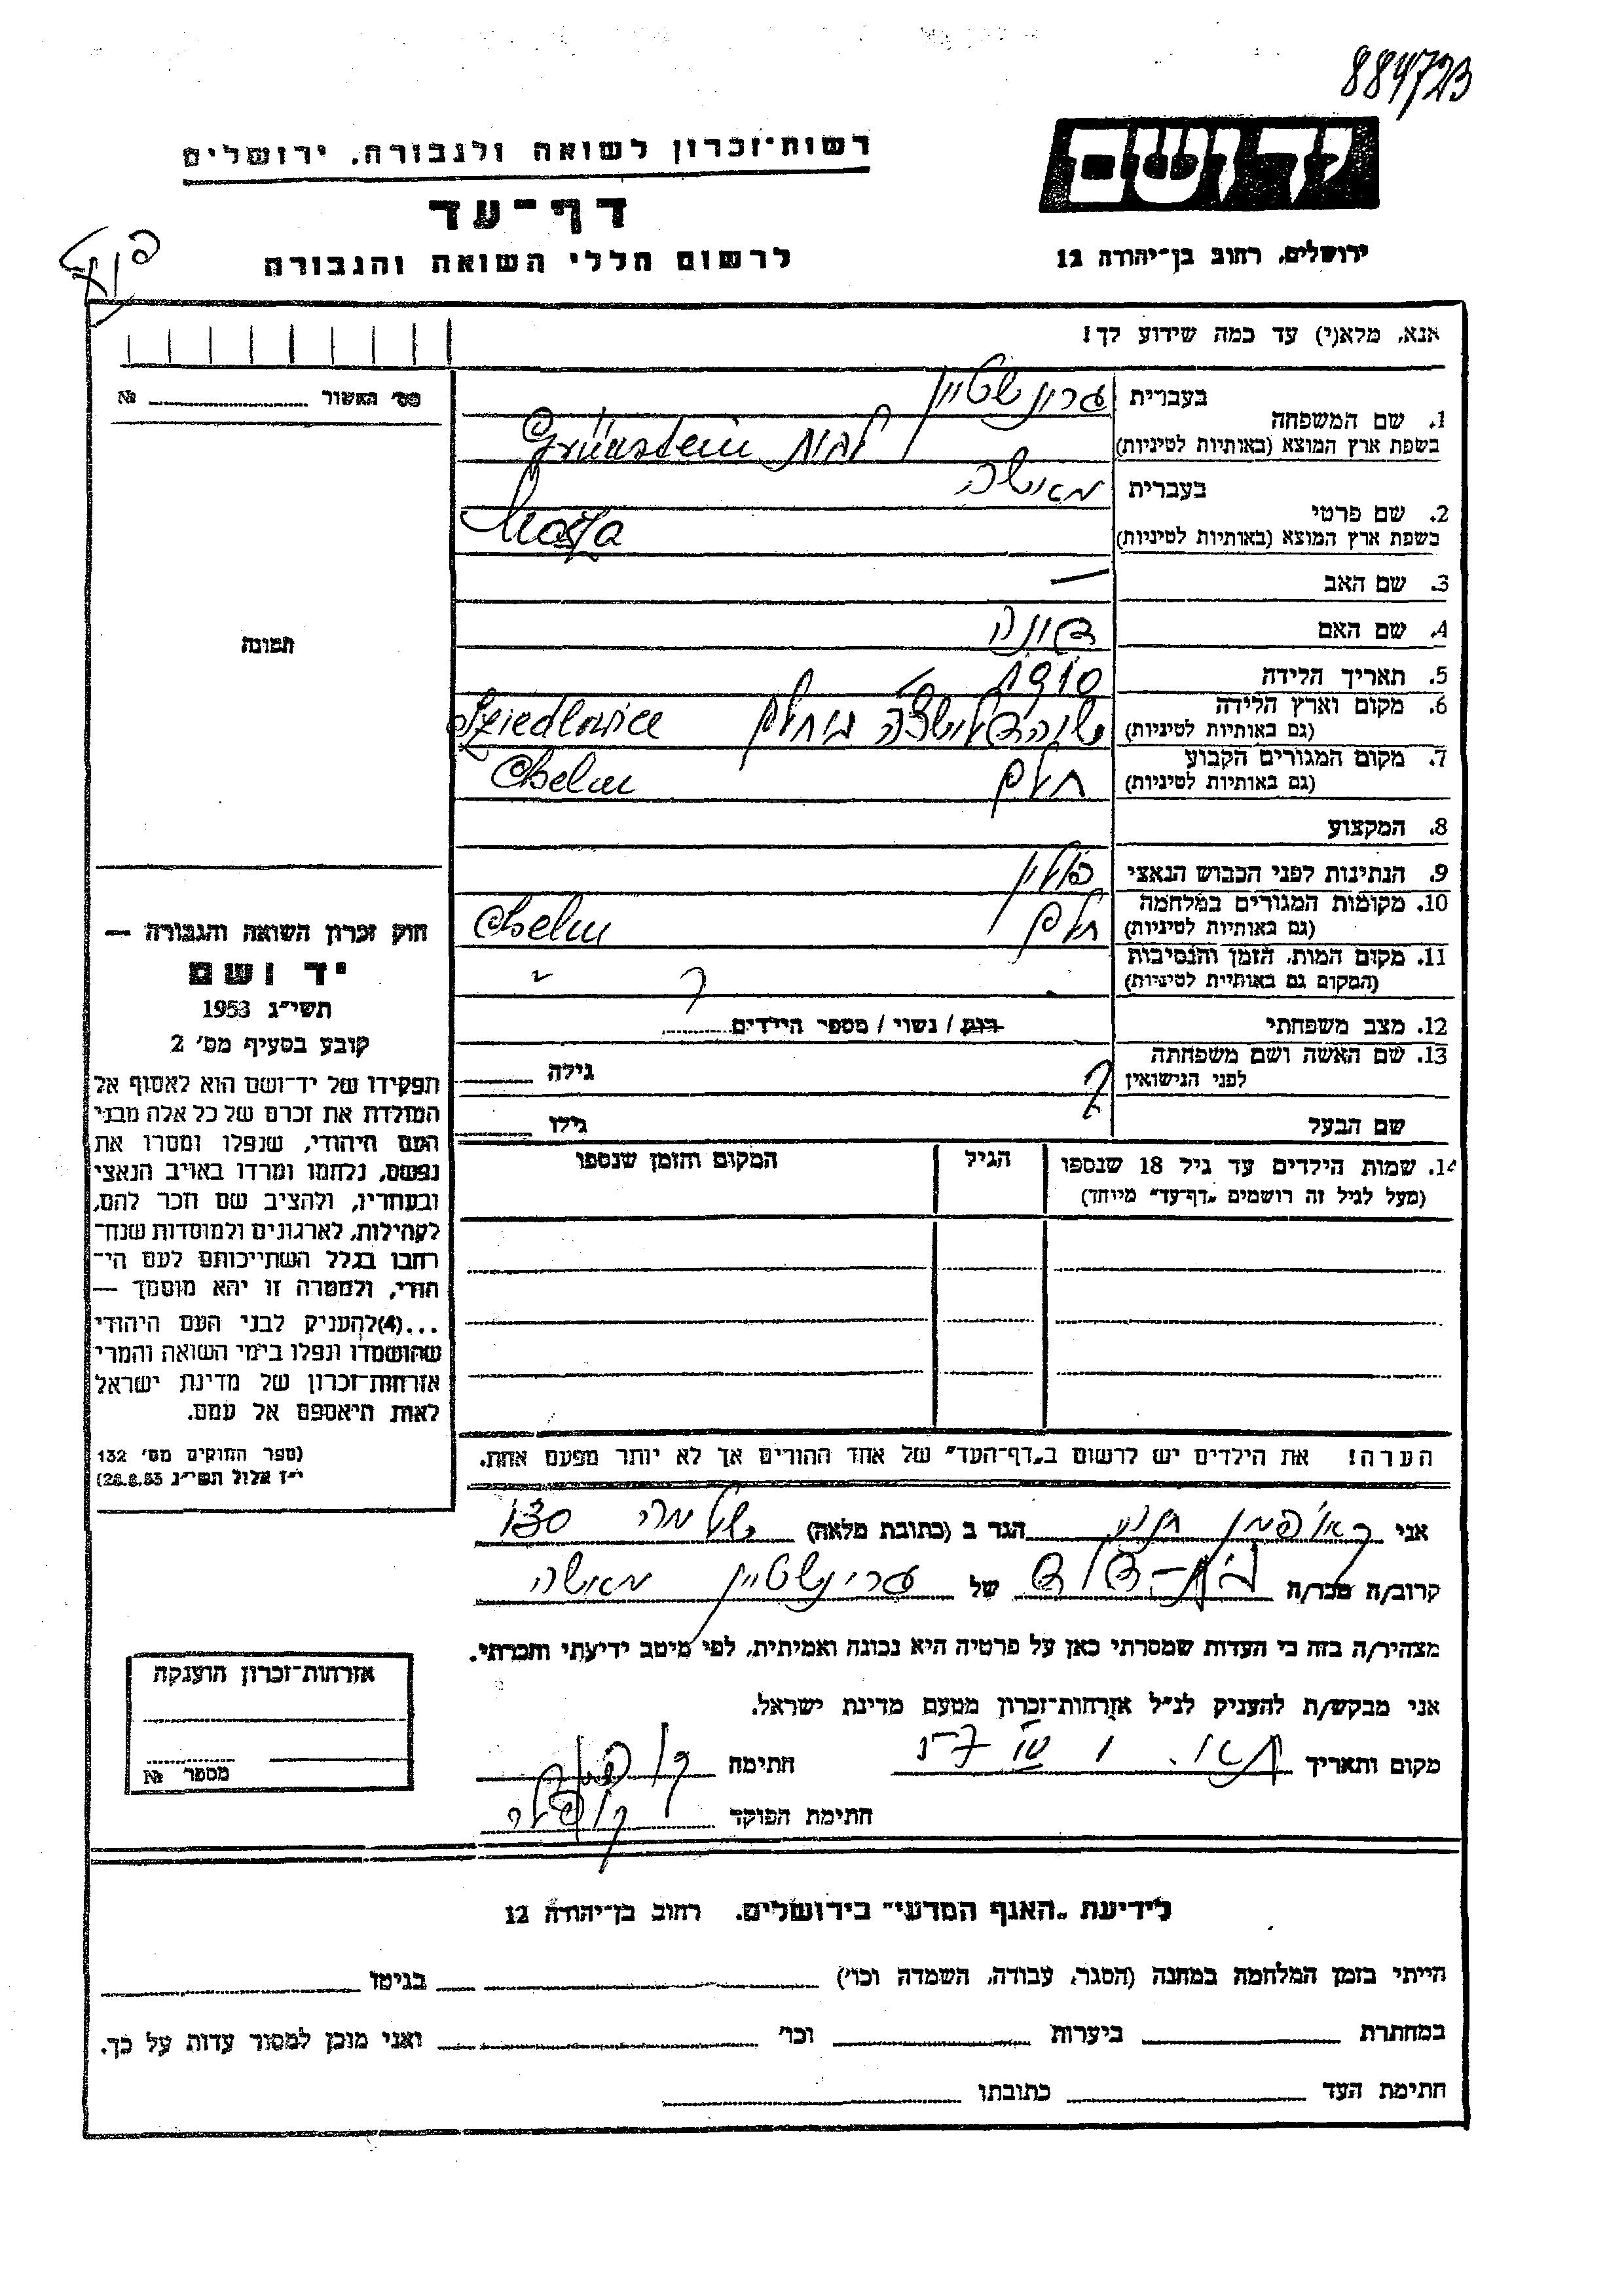 884723
רשות-זכרון לשואה ולגבורה, ירושלים
יד ושם
דף-עד
לרשום חללי השואה והגבורה
ירושלים, רחוב בן-יהודה 12
אנא, מלא(י) עד כמה שידוע לך!
מס' האשור № 
1. שם המשפחה
בעברית גרונשטיין
בשפת ארץ המוצא (באותיות לטיניות) Grünstein
2. שם פרטי
בעברית מאושה
בשפת ארץ המוצא (באותיות לטיניות)
3. שם האב —
4. שם האם
5. תאריך הלידה 1910
6. מקום וארץ הלידה
(גם באותיות לטיניות) Sziedlowice
7. מקום המגורים הקבוע חלם
(גם באותיות לטיניות) Chelm
8. המקצוע
9. הנתינות לפני הכבוש הנאצי פולין
10. מקומות המגורים במלחמה חלם
(גם באותיות לטיניות) Chelm
11. מקום המות, הזמן והנסיבות ?
(המקום גם באותיית לטיניות)
12. מצב משפחתי רוק / נשוי / מספר הילדים
13. שם האשה ושם משפחתה
לפני הנישואין גילה
?
שם הבעל גילו
14. שמות הילדים עד גיל 18 שנספו הגיל המקום והזמן שנספו
(מעל לגיל זה רושמים „דף-עד" מיוחד)
הערה! את הילדים יש לרשום ב„דף-העד" של אחד ההורים אך לא יותר מפעם אחת.
תמונה
חוק זכרון השואה והגבורה —
יד ושם
תשי"ג 1953
קובע בסעיף מס' 2
תפקידו של יד-ושם הוא לאסוף אל
המולדת את זכרם של כל אלה מבני
העם היהודי, שנפלו ומסרו את
נפשם, נלחמו ומרדו באויב הנאצי
ובעוזריו, ולהציב שם וזכר להם,
לקהילות, לארגונים ולמוסדות שנח-
רבו בגלל השתייכותם לעם הי-
הודי, ולמטרה זו יהא מוסמך —
...(4)להעניק לבני העם היהודי
שהושמדו ונפלו בימי השואה והמרי
אזרחות-זכרון של מדינת ישראל
לאות היאספם אל עמם.
(ספר החוקים מס' 132
י"ז אלול תשי"ג 28.8.53)
אני קאופמן הגר ב (כתובת מלאה) שלמה 130
קרוב/ה מכר/ה בת-דוד של גרינשטיין מאושה
מצהיר/ה בזה כי העדות שמסרתי כאן על פרטיה היא נכונה ואמיתית, לפי מיטב ידיעתי והכרתי.
אני מבקש/ת להעניק לנ"ל אזרחות-זכרון מטעם מדינת ישראל.
מקום ותאריך חתימה
חתימת הפוקד
אזרחות-זכרון הוענקה
מספר №
לידיעת „האגף המדעי" בירושלים, רחוב בן-יהודה 12
הייתי בזמן המלחמה במחנה (הסגר, עבודה, השמדה וכו') בגיטו
במחתרת ביערות וכו' ואני מוכן למסור עדות על כך.
חתימת העד כתובתו